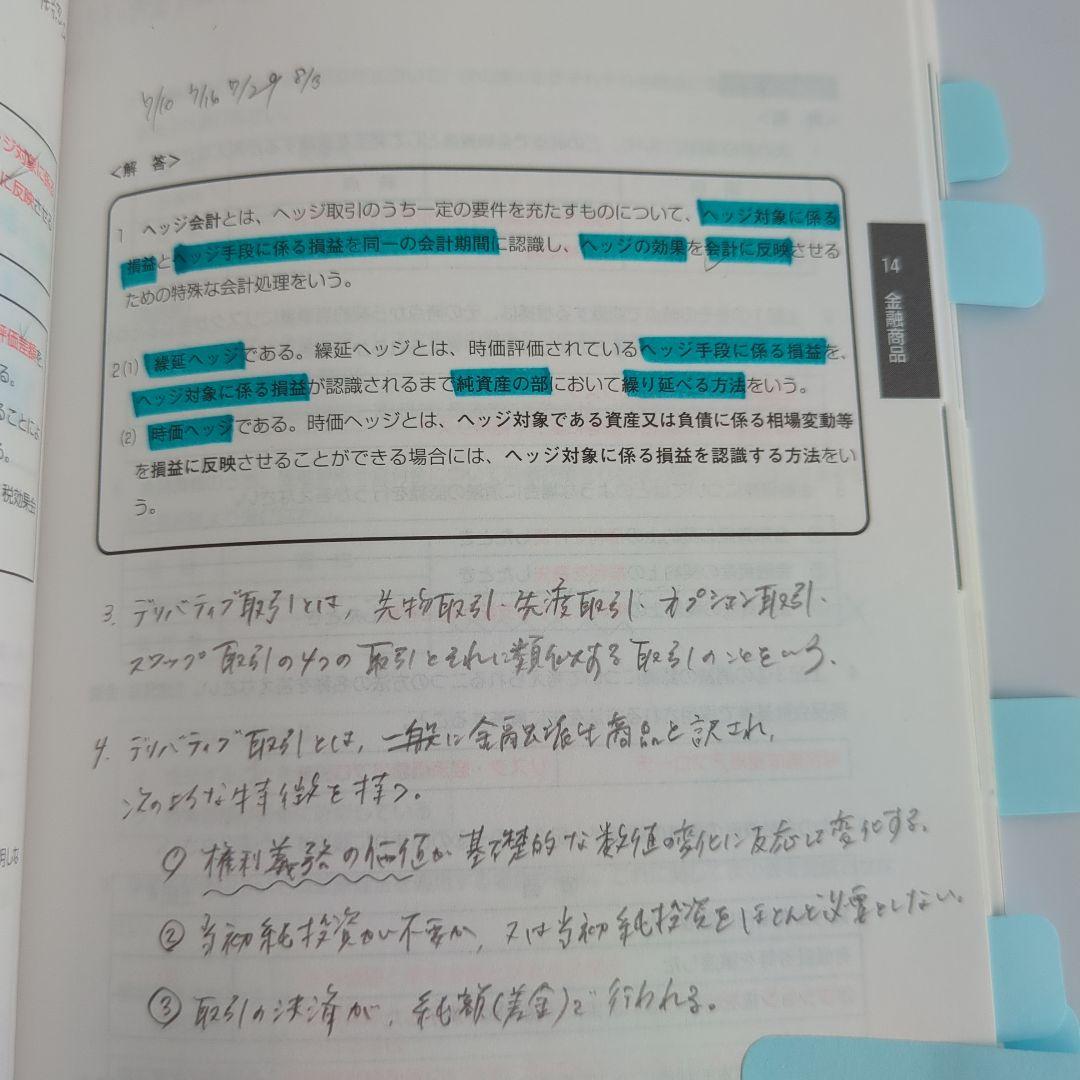 7/10 7/16 7/29 8/3
<解 答>
1 ヘッジ会計とは、ヘッジ取引のうち一定の要件を充たすものについて、ヘッジ対象に係る
損益とヘッジ手段に係る損益を同一の会計期間に認識し、ヘッジの効果を会計に反映させる
ための特殊な会計処理をいう。
2(1) 繰延ヘッジである。繰延ヘッジとは、時価評価されているヘッジ手段に係る損益を、
ヘッジ対象に係る損益が認識されるまで純資産の部において繰り延べる方法をいう。
(2) 時価ヘッジである。時価ヘッジとは、ヘッジ対象である資産又は負債に係る相場変動等
を損益に反映させることができる場合には、ヘッジ対象に係る損益を認識する方法をい
う。
3. デリバティブ取引とは、先物取引・先渡取引・オプション取引・
スワップ取引の4つの取引とそれに類似する取引のことをいう。
4. デリバティブ取引とは、一般に金融派生商品と訳され、
次のような特徴を持つ。
① 権利義務の価値が基礎的な数値の変化に反応して変化する。
② 当初純投資が不要か、又は当初純投資をほとんど必要としない。
③ 取引の決済が、純額(差金)で行われる。
14 金融商品
ッジ対象に係る
に反映させる
評価差額を、
る。
ることによ
る。
税効果会
明しな